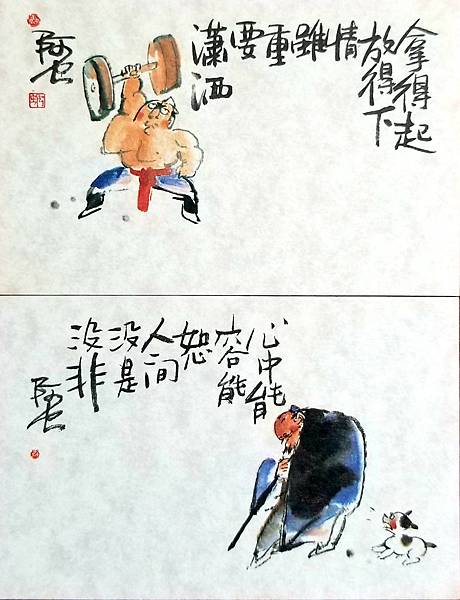 拿得起
放得下
情
雖
重
要
瀟洒
阿虫
心中能
容能
恕
人间
没是
没非
阿虫